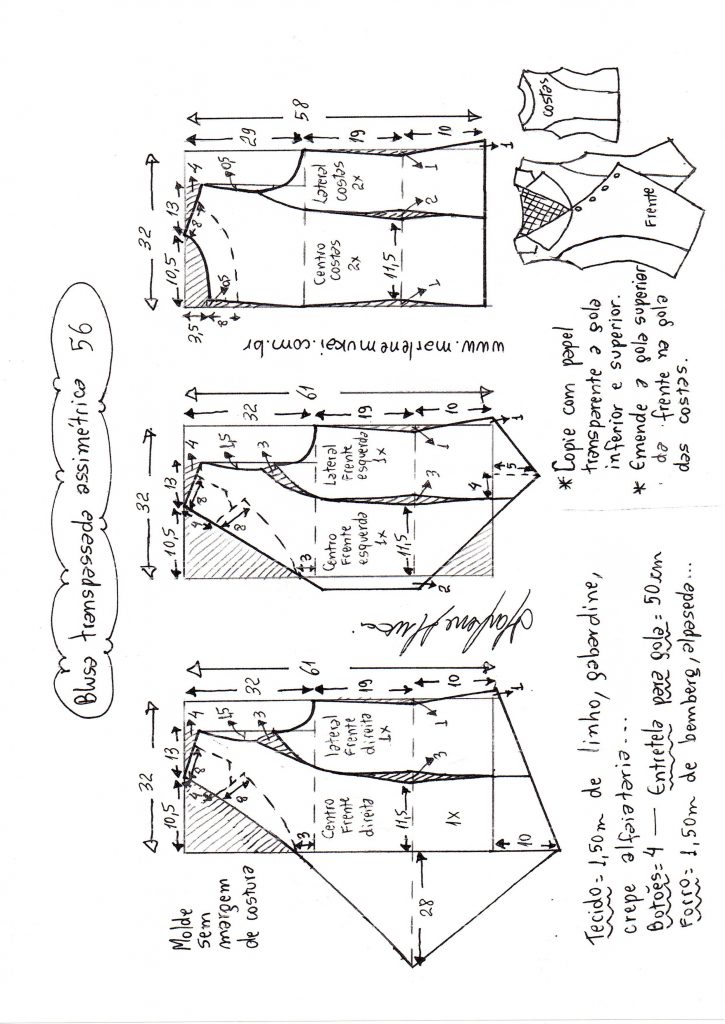 Blusa transpassada assimétrica 56
Molde
sem
margem
de costura
32
10,5
13
4
4
8
1,5
3
8
3
32
19
10
61
Centro
Frente
direita
1x
lateral
frente
direita
1x
11,5
3
1
1
28
10
32
10,5
13
4
4
8
1,5
3
8
3
32
19
10
61
Centro
Frente
esquerda
1x
Lateral
Frente
esquerda
1x
11,5
3
1
1
2
4
15
32
10,5
13
4
8
0,5
3,5
8
0,5
29
19
10
58
Centro
costas
2x
Lateral
costas
2x
11,5
1
2
1
1
www.marlenemukai.com.br
Marlene Mukai
Tecido = 1,50m de linho, gabardine,
crepe alfaiataria...
Botões = 4 — Entretela para gola = 50cm
Forro = 1,50m de bemberg, alpaseda...
* Copie com papel
transparente a gola
inferior e superior.
* Emende a gola superior
da frente na gola
das costas.
Frente
costas